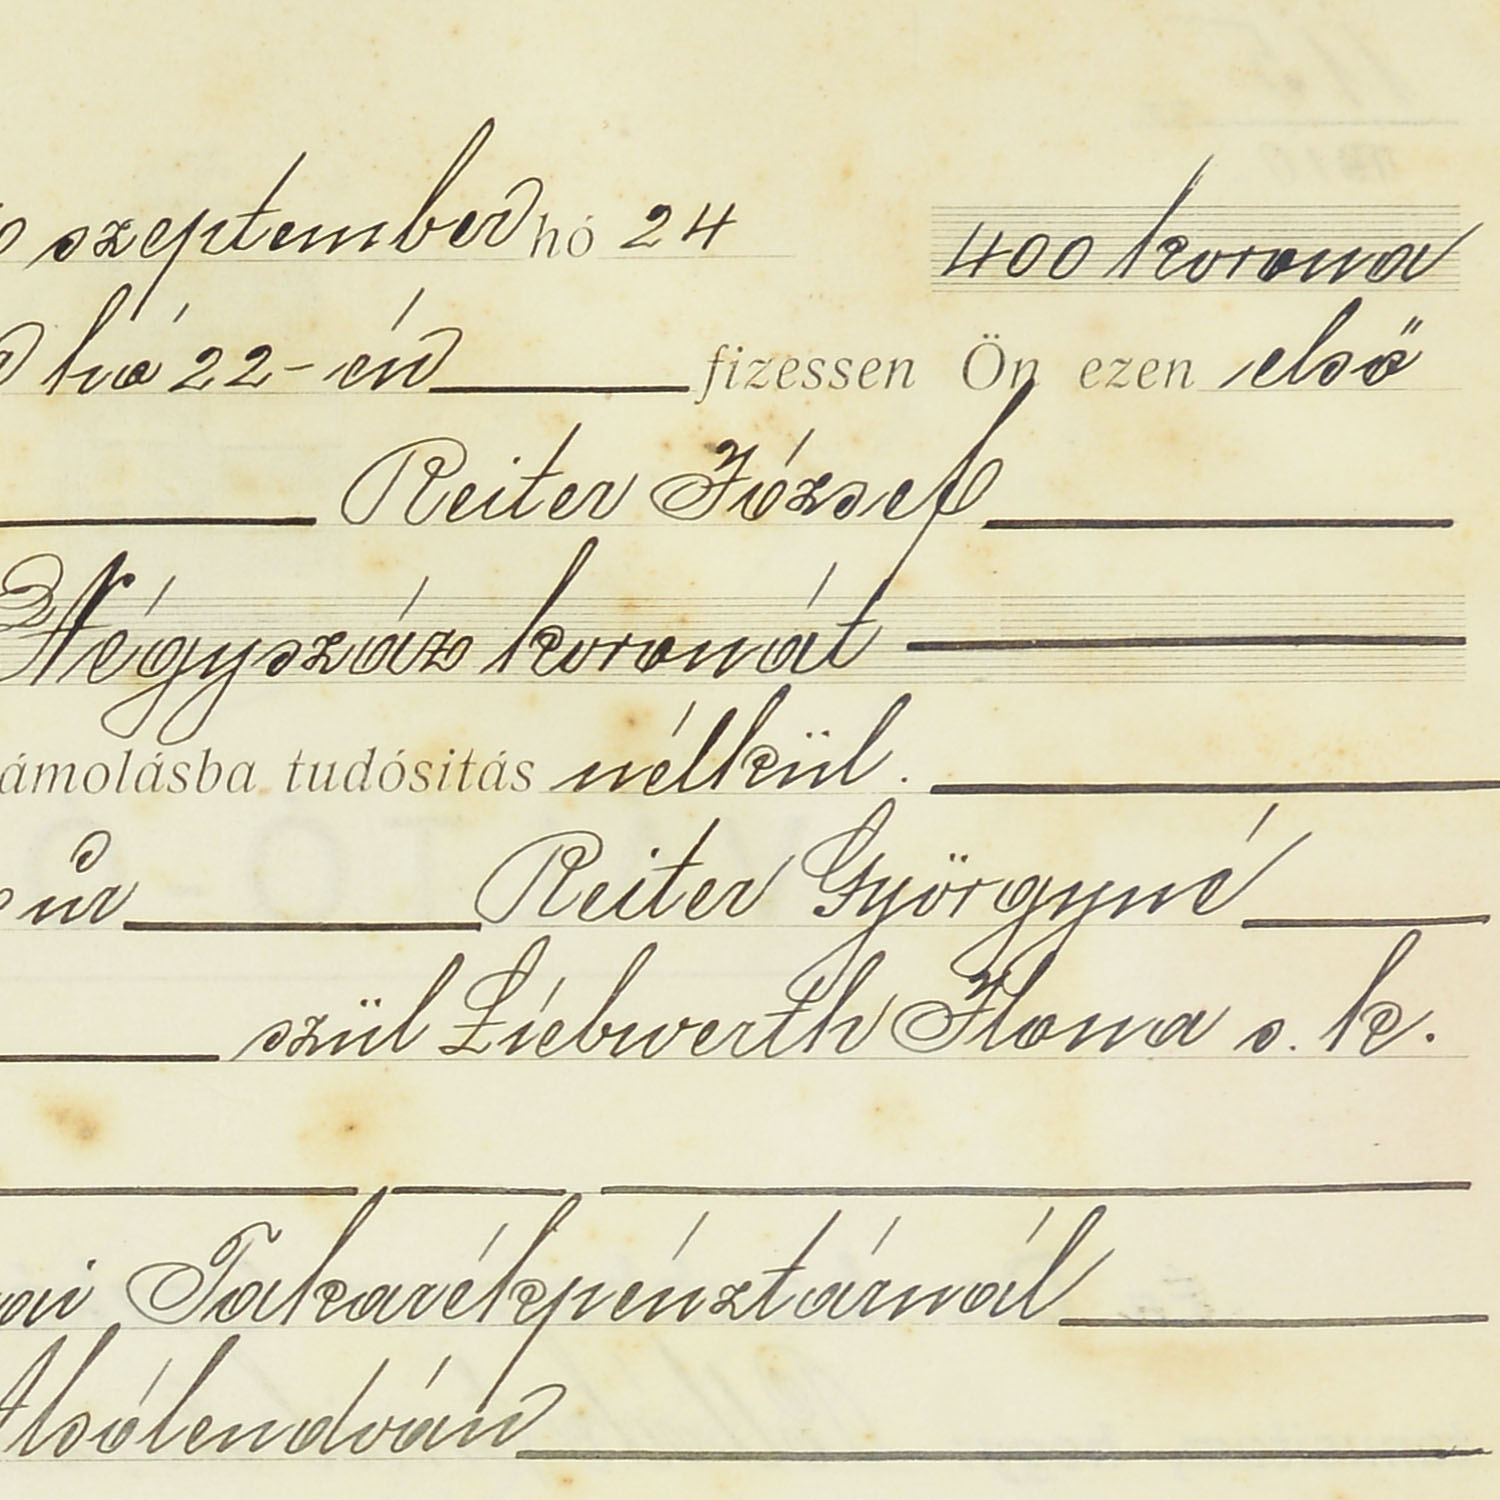 szeptember hó 24 400 korona
hó 22-én fizessen Ön ezen első
Reiter József
Négyszáz koronát
ámolásba tudósitás nélkül.
úr Reiter Györgyné
szül Liebwerth Ilona s. k.
ai Takarékpénztárnál
Alsólendván